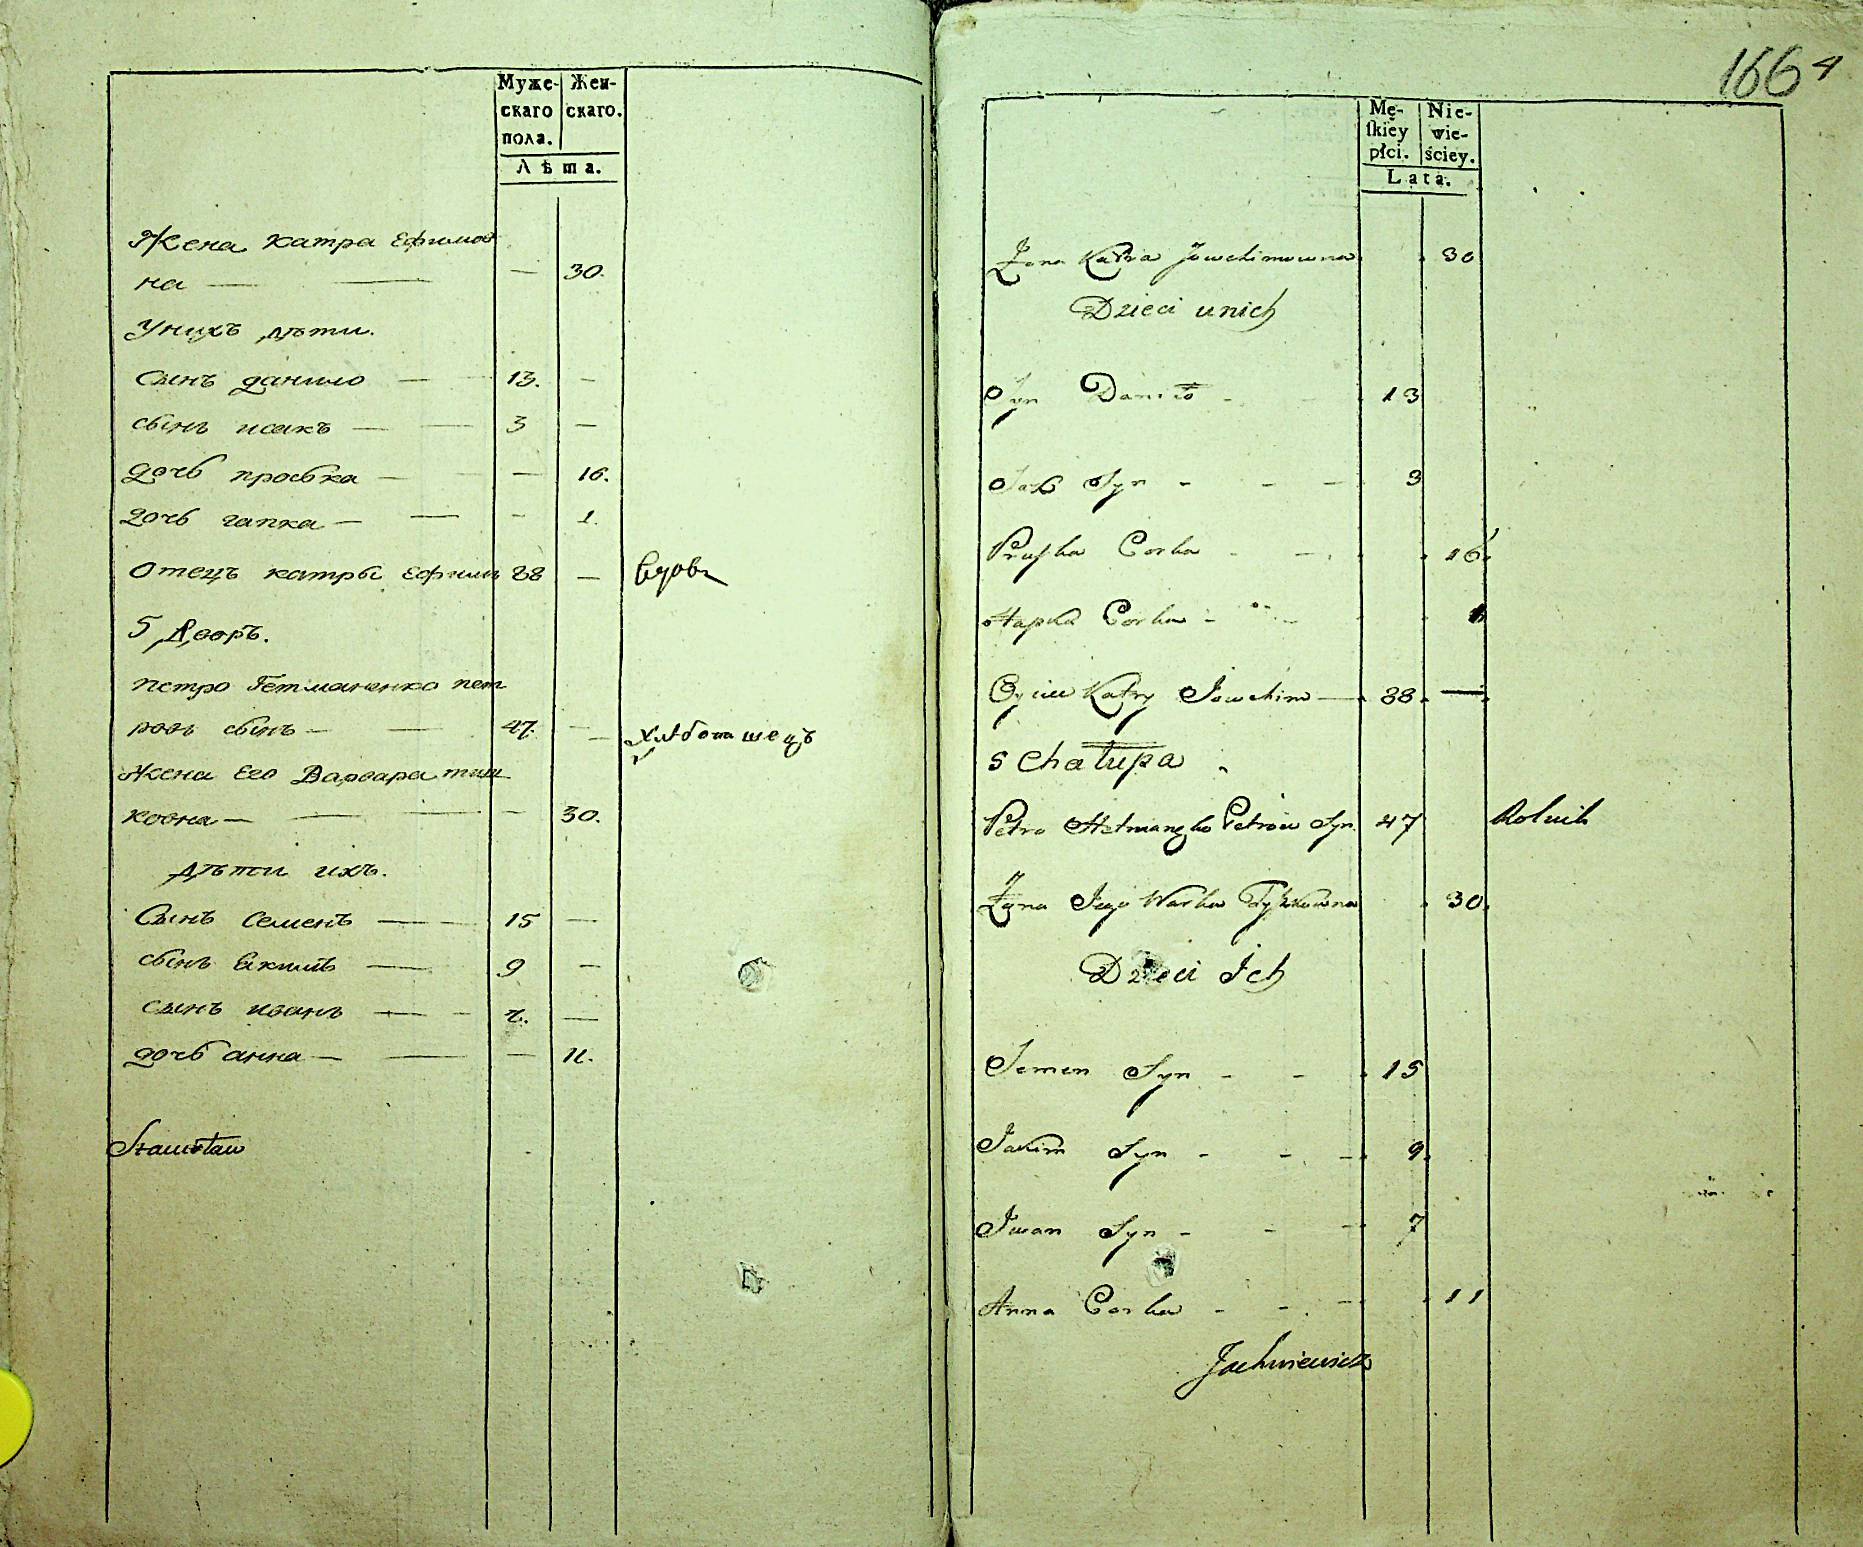 Муже-
скаго
пола.
Жен-
скаго.
Лѣта.
Жена катра Ефимов
на — — — 30.
Унихъ дѣти.
Сынъ данило — 13. —
сынъ исакъ — — 3 —
дочь проська — — — 16.
дочь гапка — — - 1.
Отецъ катры Ефимъ 88 — Вдовъ
5 Дворъ.
петро Гетманенко пет
ровъ сынъ — — 47. — хлѣбопашецъ
Жена Его Варвара тиш
ковна — — — — 30.
дѣти ихъ.
Сынъ Семенъ — — 15 —
сынъ Якимъ — 9 —
сынъ иванъ — - 7. —
дочь анна — — — 11.
Stanisław
166 4
Mę-
skiey
płci.
Nie-
wie-
ściey.
Lata.
Żona Katra Jowchimowna 30
Dzieci unich
Syn Daniło - 13
Syn - - - 3
Pruska Corka - - 16
Hapka Corka - - 1
Oyciec Katry Jowchim — 88 —
5 Chałupa
Petro Hetmanenko Petrow Syn 47 Rolnik
Żona Jego Warka Tyszkowna 30
Dzieci Ich
Semen Syn - - 15
Jakim Syn - - - 9
Iwan Syn - - - 7
Anna Corka - - - 11
Jachniewicz